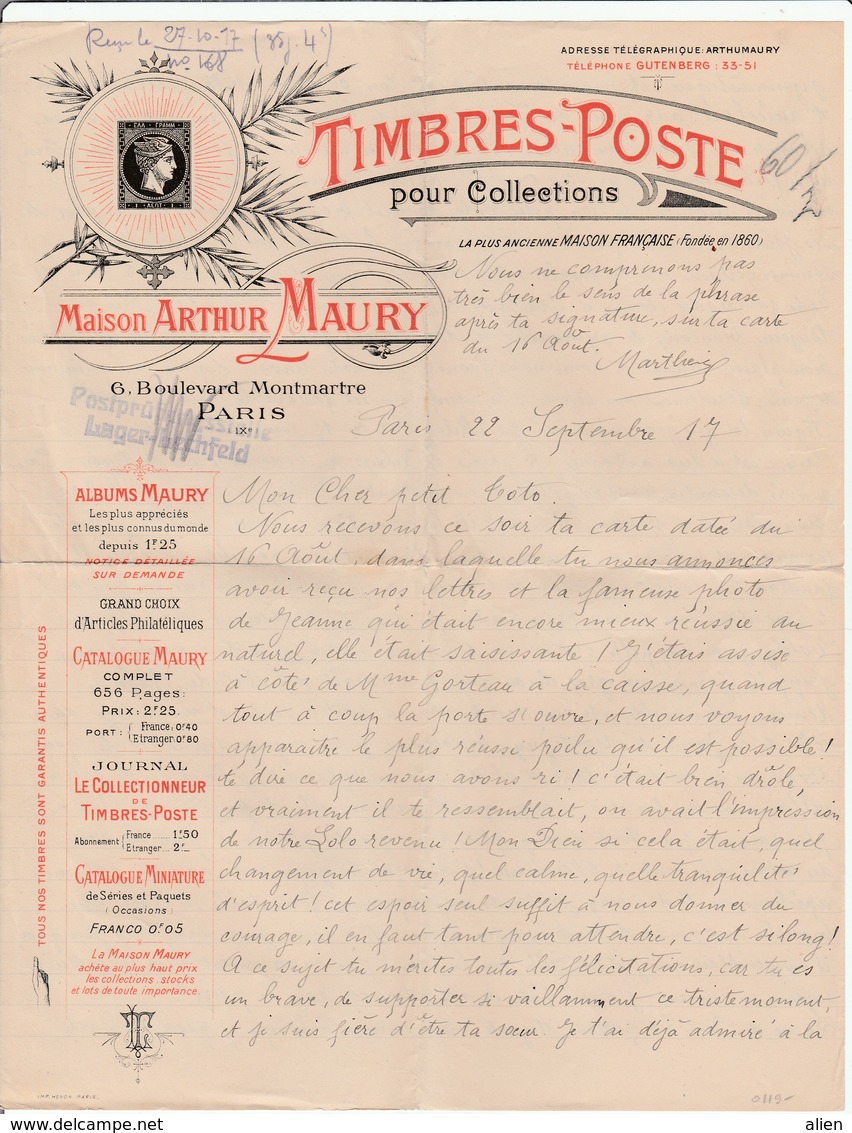 Reçu le 27-10-17 (35j. 4s)
no 168
ADRESSE TÉLÉGRAPHIQUE: ARTHUMAURY
TÉLÉPHONE GUTENBERG : 33-51
ΕΛΛ ΓΡΑΜΜ
1 ΛΕΠΤ 1
TIMBRES-POSTE
pour Collections
60/
LA PLUS ANCIENNE MAISON FRANÇAISE (Fondée en 1860)
Maison ARTHUR MAURY
6, Boulevard Montmartre
PARIS
IXe
Lager-Lechfeld
Nous ne comprenons pas
très bien le sens de la phrase
après ta signature, sur ta carte
du 16 Août.
Paris 22 Septembre 17
Mon Cher petit Coto.
Nous recevons ce soir ta carte datée du
16 Août, dans laquelle tu nous annonces
avoir reçu nos lettres et la fameuse photo
de Jeanne qui était encore mieux réussie au
naturel, elle était saisissante ! J'étais assise
à côté de Mme Gorteau à la caisse, quand
tout à coup la porte s'ouvre, et nous voyons
apparaître le plus réussi poilu qu'il est possible!
te dire ce que nous avons ri ! c'était bien drôle,
et vraiment il te ressemblait, on avait l'impression
de notre Lolo revenu ! Mon Dieu si cela était, quel
changement de vie, quel calme, quelle tranquilité
d'esprit ! cet espoir seul suffit à nous donner du
courage, il en faut tant pour attendre, c'est si long!
A ce sujet tu mérites toutes les félicitations, car tu es
un brave, de supporter si vaillamment ce triste moment,
et je suis fière d'être ta sœur. Je t'ai déjà admiré à la
ALBUMS MAURY
Les plus appréciés
et les plus connus du monde
depuis 1F25
NOTICE DÉTAILLÉE
SUR DEMANDE
GRAND CHOIX
d'Articles Philatéliques
CATALOGUE MAURY
COMPLET
656 Pages:
PRIX: 2F25.
PORT: { France: 0F40
Etranger: 0F80
JOURNAL
LE COLLECTIONNEUR
DE
TIMBRES-POSTE
Abonnement { France ...... 1F50
Etranger ... 2F_
CATALOGUE MINIATURE
de Séries et Paquets
(Occasions)
FRANCO 0F05
La MAISON MAURY
achète au plus haut prix
les collections, stocks
et lots de toute importance.
TOUS NOS TIMBRES SONT GARANTIS AUTHENTIQUES
IMP. HENON PARIS.
0119-
www.delcampe.net
alien